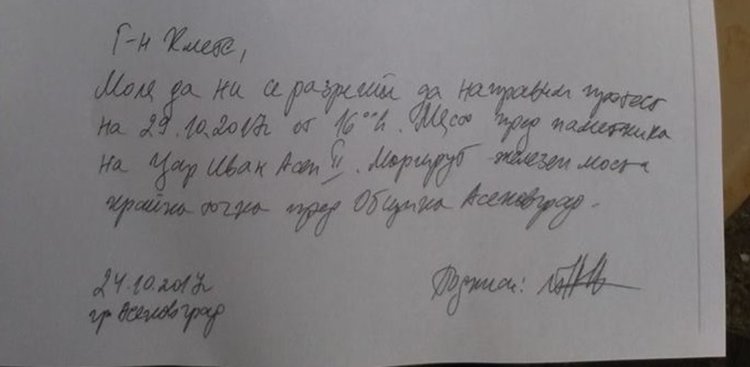 Г-н Кмете,
Моля да ни се разреши да направим протест
на 29.10.2017г от 16⁰⁰ч. Място пред паметника
на Цар Иван Асен II. Маршрут железен моста
крайна точка пред Община Асеновград.
24.10.2017г
гр Асеновград
Подпис: